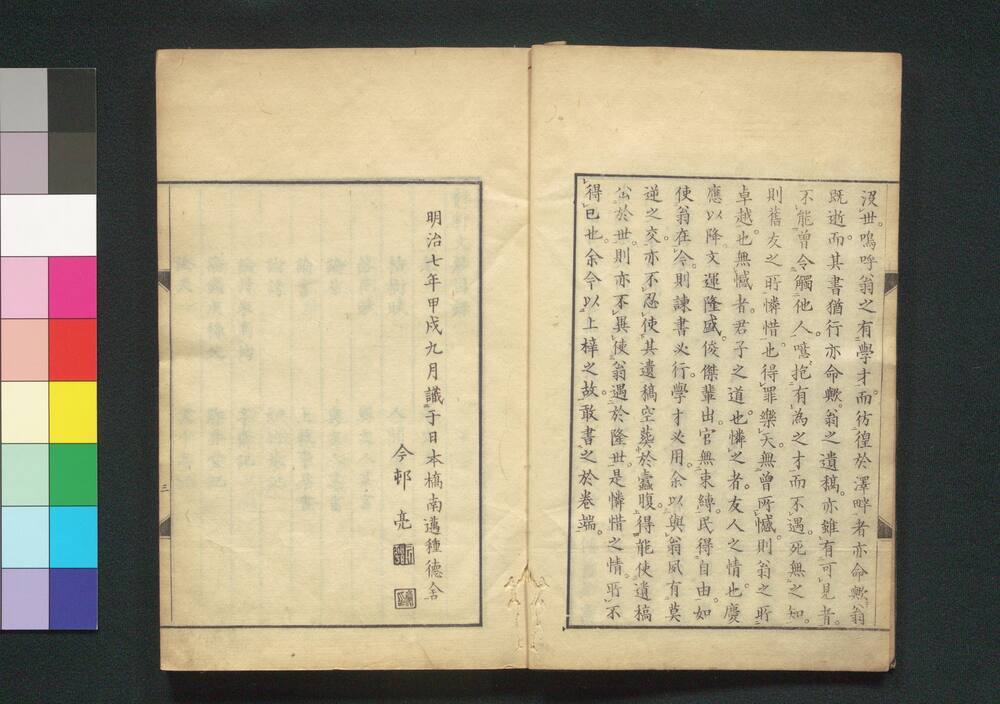 沒世。嗚呼翁之有學才。而彷徨於澤畔者亦命歟。翁
既逝而其書猶行亦命歟。翁之遺稿。亦雖有可見者。
不能曾令觸他人。噫抱有為之才而不遇。死無之知。
則舊友之所憐惜也得罪樂天。無曾所憾。則翁之所
卓越也。無憾者。君子之道也。憐之者。友人之情也。慶
應以降。文運隆盛。俊傑輩出。官無束縛。民得自由。如
使翁在今。則諫書必行。學才必用。余以與翁夙有莫
逆之交。亦不忍使其遺稿空葬於蠹腹。得能使遺稿
公於世。則亦不異使翁遇於隆世。是憐惜之情。所不
得已也。余今以上梓之故。敢書之於卷端。
明治七年甲戌九月識于日本橋南邁種德舍
今邨亮
三